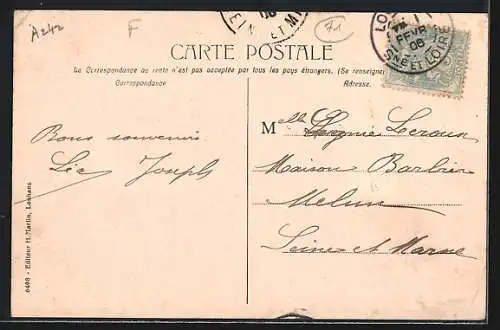 A242
F
71
LO
FEVR
06
SNE ET LOIRE
06
EINE ET M
CARTE POSTALE
La Correspondance au recto n'est pas acceptée par tous les pays étrangers. (Se renseigner
Correspondance
Adresse.
Bons souvenirs
Joseph
Melle Leroux
Maison Barbier
Melun
Seine et Marne
6408 - Editeur H. Marlin, Louhans